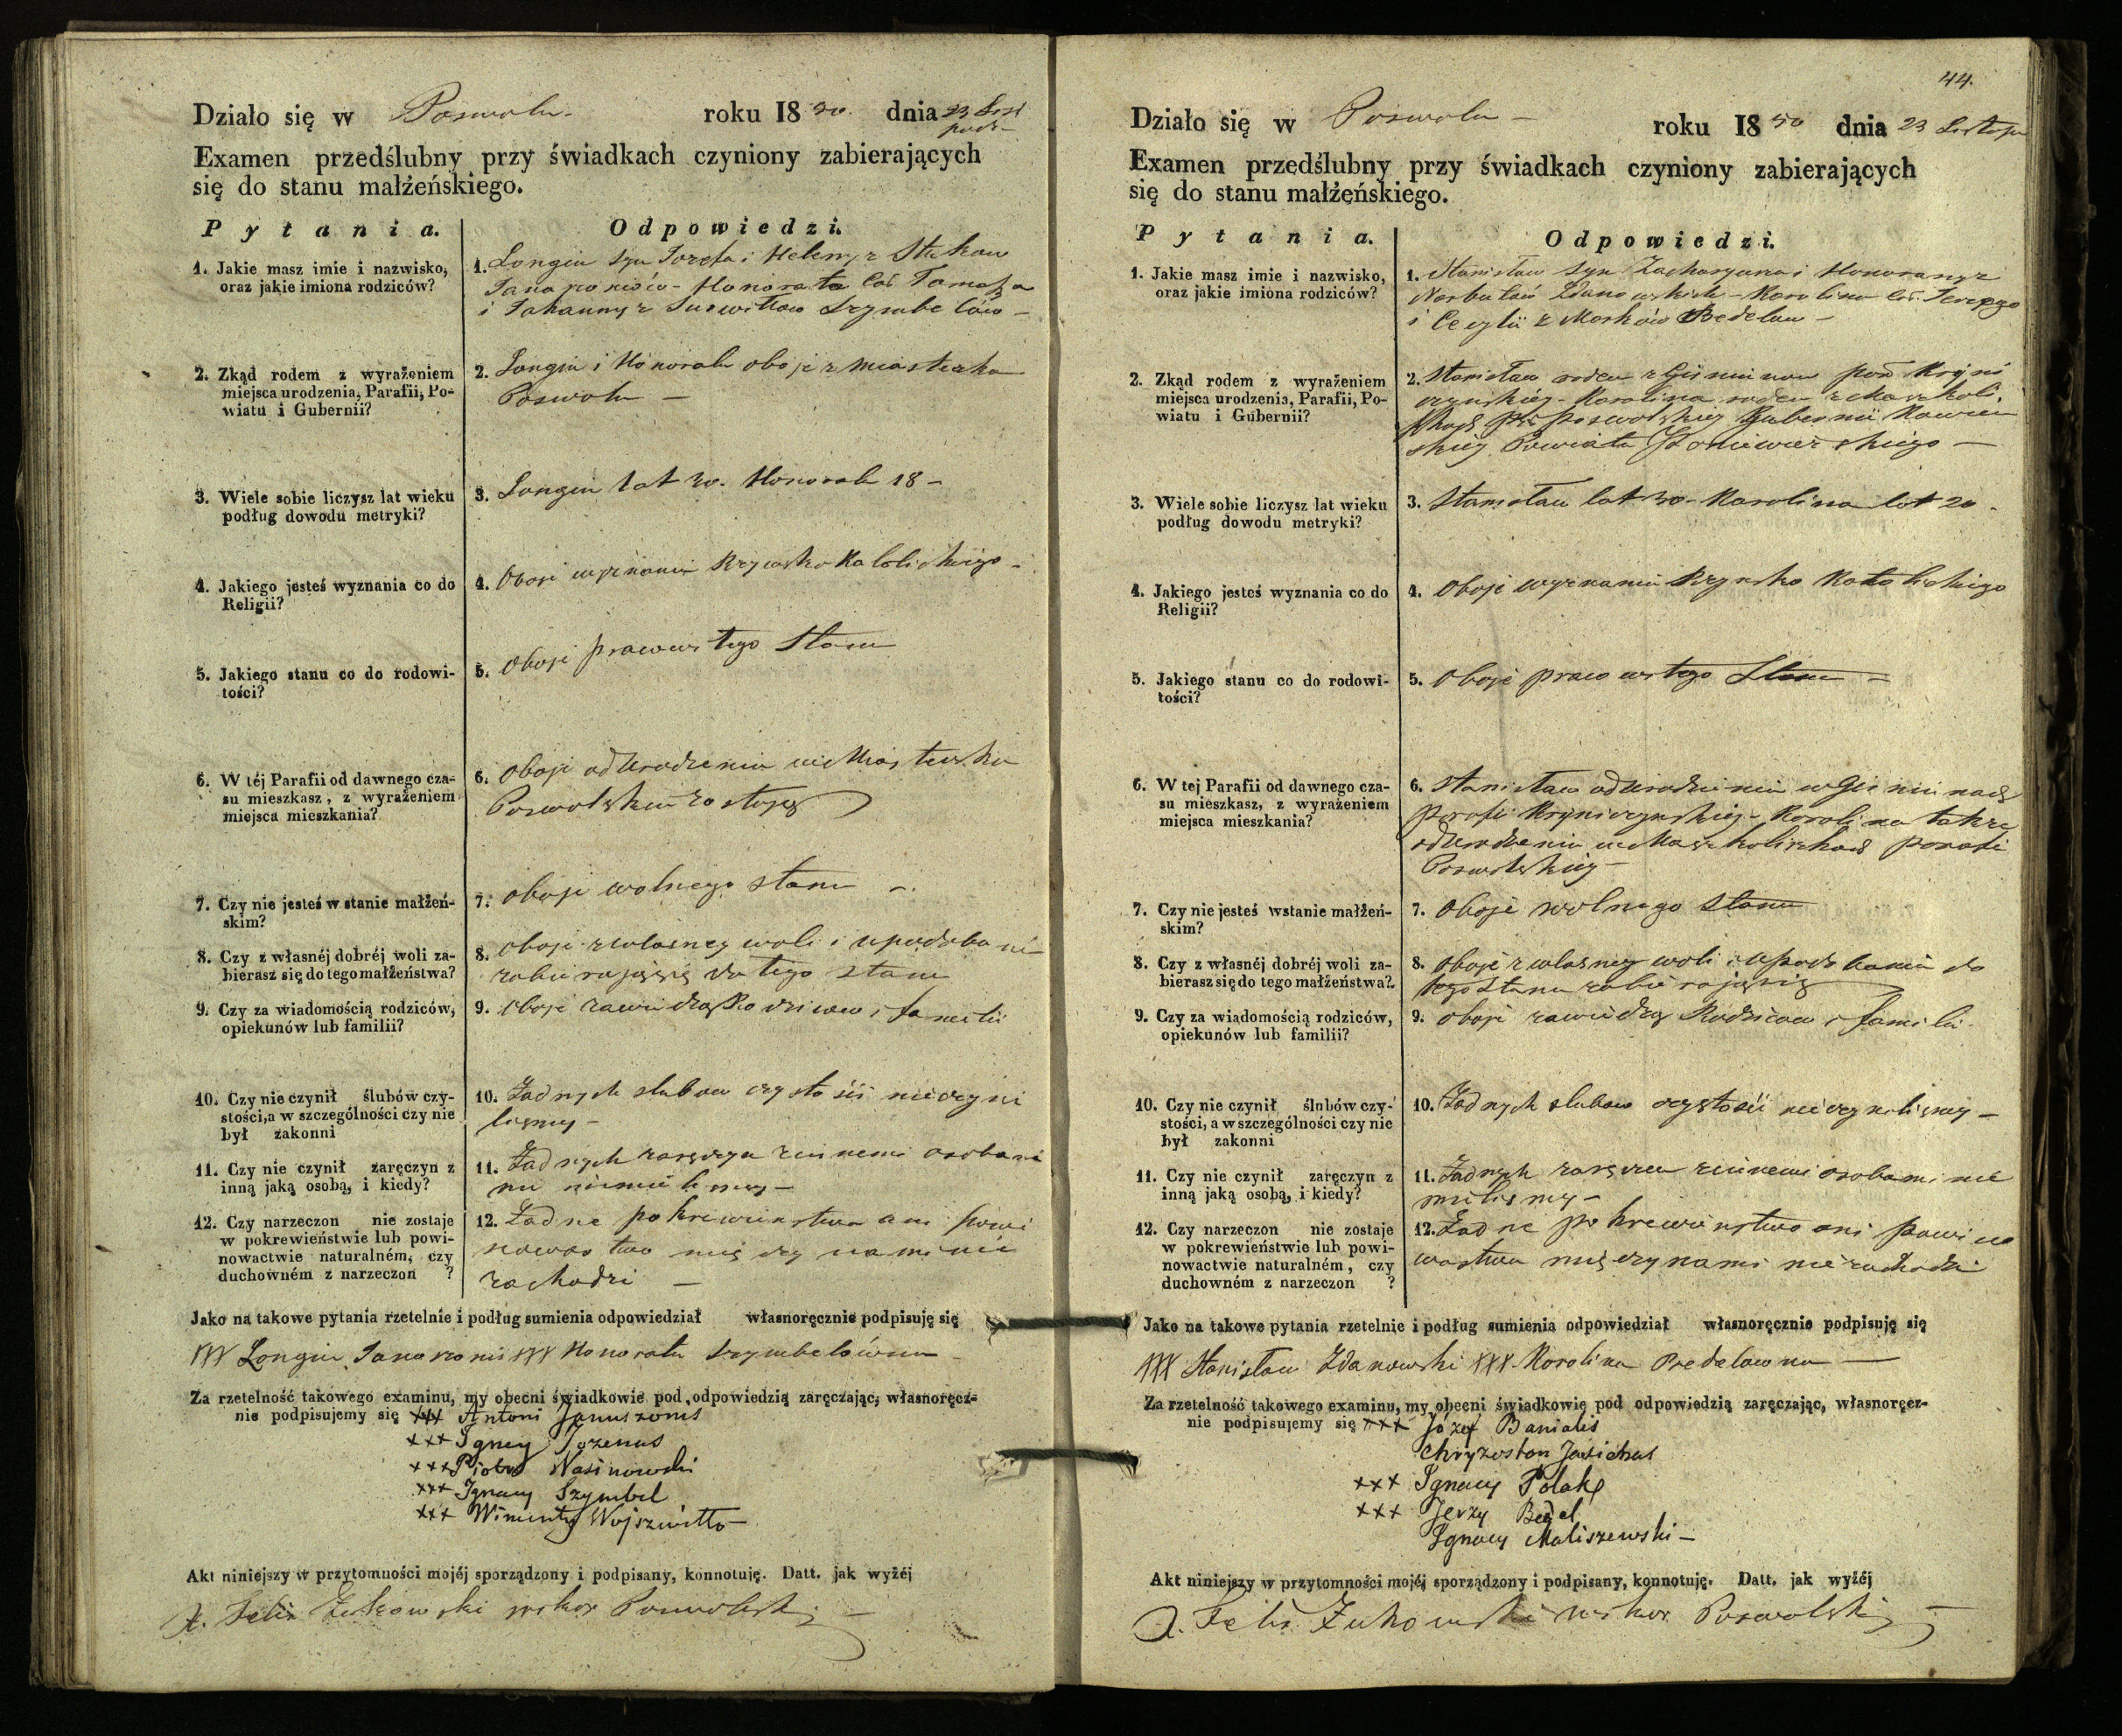 Działo się w Poswolu roku 1850 dnia 23 List
pada
Examen przedślubny przy świadkach czyniony zabierających
się do stanu małżeńskiego.
Pytania. Odpowiedzi.
1. Jakie masz imie i nazwisko,
oraz jakie imiona rodziców?
1. Longin syn Jozefa i Heleny z
Honorata Cór. Tomasza
i Johanny z
2. Zkąd rodem z wyrażeniem
miejsca urodzenia, Parafii, Po-
wiatu i Gubernii?
2. Longin i Honorata oboje z Miasteczka
Poswolu —
3. Wiele sobie liczysz lat wieku
podług dowodu metryki?
3. Longin lat Honorata 18 –
4. Jakiego jesteś wyznania co do
Religii?
4. Oboje wyznania Rzymsko Katolickiego –
5. Jakiego stanu co do rodowi-
tości?
5. Oboje prawego Stanu
6. W téj Parafii od dawnego cza-
su mieszkasz, z wyrażeniem
miejsca mieszkania?
6. Oboje od Urodzenia w Miasteczku
Poswolskim
7. Czy nie jesteś w stanie małżeń-
skim?
7. Oboje wolnego stanu –
8. Czy z własnéj dobréj woli za-
bierasz się do tego małżeństwa?
8. Oboje z własney woli i upodobani
zabierający się do tego stanu
9. Czy za wiadomością rodziców,
opiekunów lub familii?
9. Oboje za wiedzą Rodziców i familii
10. Czy nie czynił ślubów czy-
stości, a w szczególności czy nie
był zakonni
10. Żadnych slubow czystości nieczyni
lismy –
11. Czy nie czynił zaręczyn z
inną jaką osobą, i kiedy?
11. Żadnych zaręczyn z innemi osobami
12. Czy narzeczon nie zostaje
w pokrewieństwie lub powi-
nowactwie naturalném, czy
duchowném z narzeczon ?
12. Żadne pokrewienstwo ani powi
nowactwo między nami nie
zachodzi —
Jako na takowe pytania rzetelnie i podług sumienia odpowiedział własnoręcznie podpisuję się
XXX Longin XXX Honorata Szymbelówna
Za rzetelność takowego examinu, my obecni świadkowie pod odpowiedzią zaręczając, własnoręcz-
nie podpisujemy się xxx Antoni Januszonis
xxx Ignacy Jozenas
xxx Piotr Wasinowski
xxx Ignacy Szymbel
xxx Wincenty Wojszwitto
Akt niniejszy w przytomności mojéj sporządzony i podpisany, konnotuję. Datt. jak wyżéj
X. Felix Żukowski wikar Poswolski
44.
Działo się w Poswolu — roku 1850 dnia 23 Listopa
Examen przedślubny przy świadkach czyniony zabierających
się do stanu małżeńskiego.
Pytania. Odpowiedzi.
1. Jakie masz imie i nazwisko,
oraz jakie imiona rodziców?
1. Stanisław Syn Zacharyasza i Honoraty z
Narbutów Zdanowskich – Karolina Cór. Jerzego
i Cecylii z
2. Zkąd rodem z wyrażeniem
miejsca urodzenia, Parafii, Po-
wiatu i Gubernii?
2. Stanisław rodem z
Karolina rodem z
Poswolskiey Gubernii Kowien
skiey Powiatu Poniewiezskiego —
3. Wiele sobie liczysz lat wieku
podług dowodu metryki?
3. Stanisław lat 30 – Karolina lat 20 –
4. Jakiego jesteś wyznania co do
Religii?
4. Oboje wyznania Rzymsko Katolickiego
5. Jakiego stanu co do rodowi-
tości?
5. Oboje prawego Stanu —
6. W tej Parafii od dawnego cza-
su mieszkasz, z wyrażeniem
miejsca mieszkania?
6. Stanisław od Urodzenia w
Parafii Karolina także
od Urodzenia w parafi
Poswolskiey –
7. Czy nie jesteś wstanie małżeń-
skim?
7. Oboje wolnego stanu
8. Czy z własnéj dobréj woli za-
bierasz się do tego małżeństwa?
8. Oboje z własney woli i upodobania do
tego Stanu zabierający się
9. Czy za wiadomością rodziców,
opiekunów lub familii?
9. Oboje za wiedzą Rodzicow i familii
10. Czy nie czynił ślubów czy-
stości, a w szczególności czy nie
był zakonni
10. Żadnych slubow czystości nieczynilismy –
11. Czy nie czynił zaręczyn z
inną jaką osobą, i kiedy?
11. Żadnych z innemi osobami nie
mielismy –
12. Czy narzeczon nie zostaje
w pokrewieństwie lub powi-
nowactwie naturalném, czy
duchowném z narzeczon ?
12. Żadne pokrewienstwo ani powino
wactwo między nami nie zachodzi
Jako na takowe pytania rzetelnie i podług sumienia odpowiedział własnoręcznie podpisuję się
XXX Stanisław Zdanowski XXX Karolina Bedelowna —
Za rzetelność takowego examinu, my obecni świadkowie pod odpowiedzią zaręczając, własnoręcz-
nie podpisujemy się xxx Józef Banialis
Chryzostom Jasichas
xxx Ignacy Polak
xxx Jerzy Bedel
Ignacy Maliszewski –
Akt niniejszy w przytomności mojéj sporządzony i podpisany, konnotuję. Datt. jak wyżéj
X. Felix Żukowski wikar Poswolski –